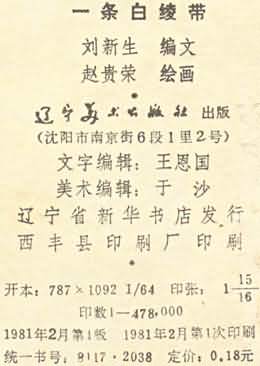 一条白绫带
刘新生 编文
赵贵荣 绘画
辽宁美术出版社 出版
(沈阳市南京街6段1里2号)
文字编辑：王恩国
美术编辑：于 沙
辽宁省新华书店发行
西丰县印刷厂印刷
开本：787×1092 1/64 印张：1 15/16
印数1—478,000
1981年2月第1版 1981年2月第1次印刷
统一书号：8117·2038 定价：0.18元